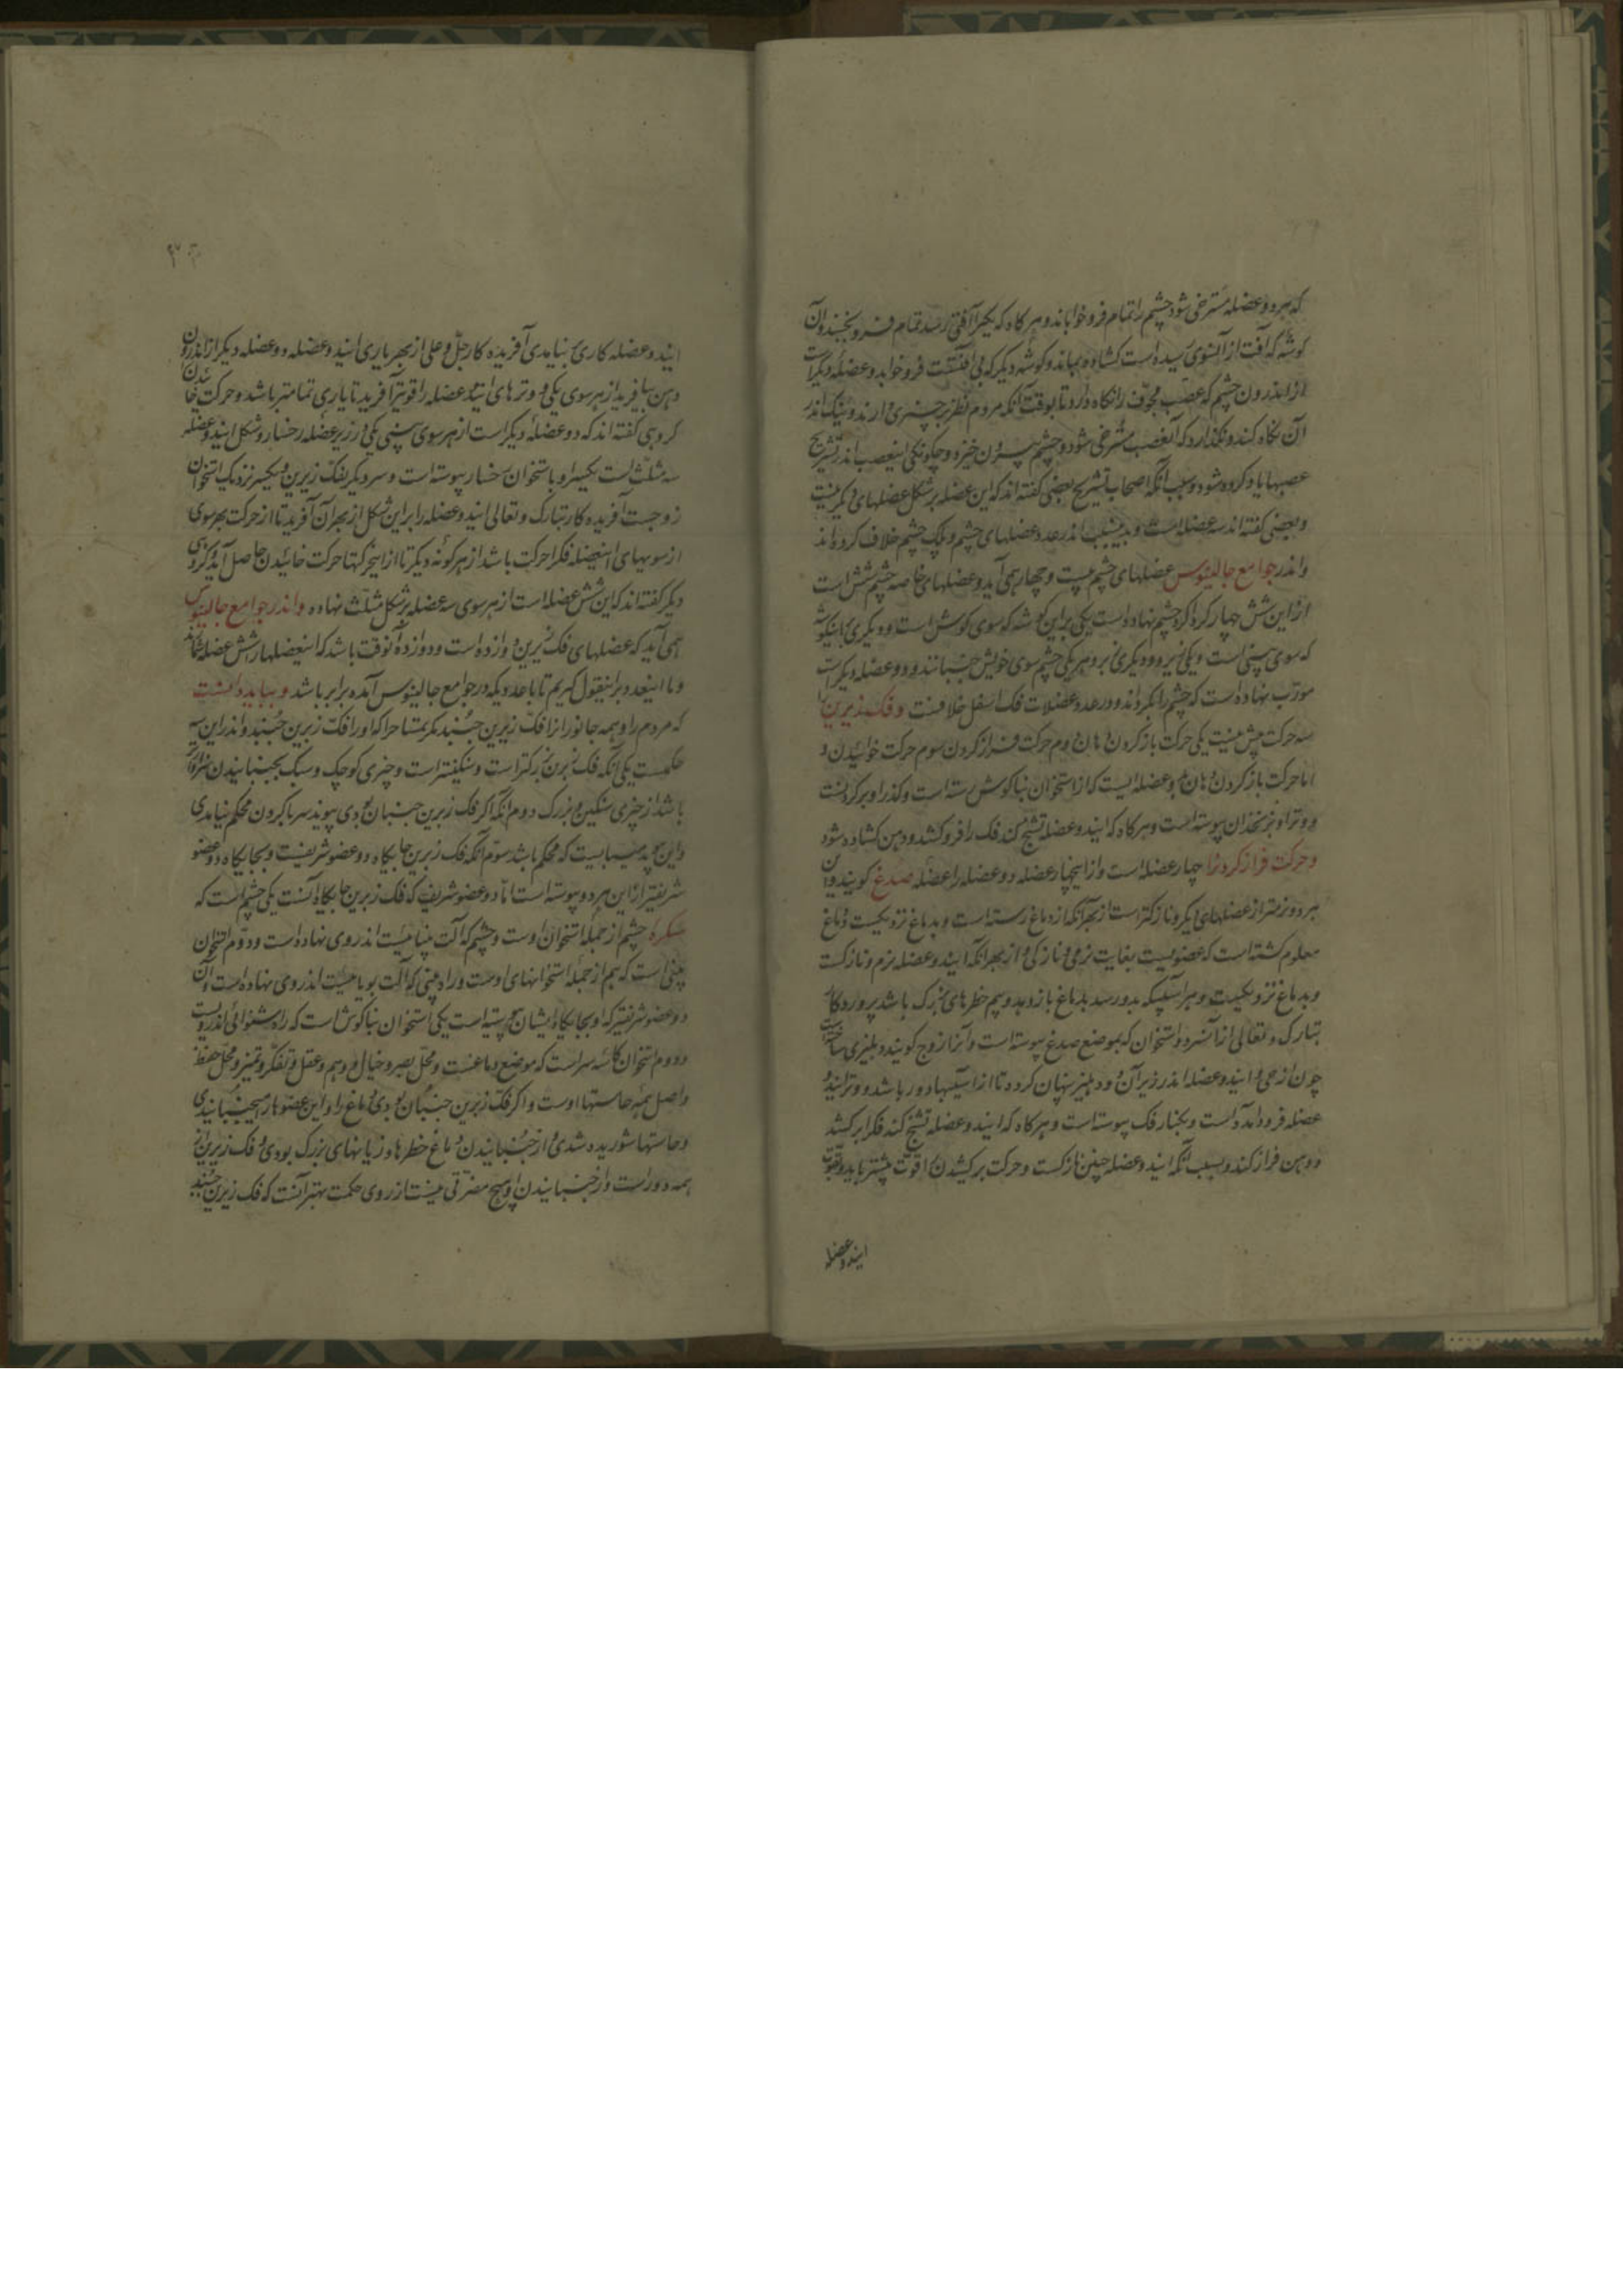 که هر دو عضله مسترخی شود چشم را تمام فرو خواباند و هر گاه که یکی را آفتی رسد تمام فرو نخسبد و آن
گوشه که آفت از آنسوی رسیده است گشاده بماند و گوشه دیگر که بی آفتست فرو خوابد و عضله دیگر است
از اندرون چشم که عصب مجوف را نگاه دارد تا بوقت آنکه مردم نظر بر چیزی دارند و نیک اندر
آن نگاه کنند و نگذارد که آنعصب مسترخی شود و چشم بیرون خیزد و چگونگی اینعصب اندر تشریح
عصبها یاد کرده شود و بسبب آنکه اصحاب تشریح بعضی گفته اند که این عضله بر شکل عضلهای دیگر نیست
و بعضی گفته اند سه عضله است و بدینسبب اندر عدد عضلهای چشم و پلک چشم خلاف کرده اند
و اندر جوامع جالینوس عضلهای چشم بیست و چهار همی آید و عضلهای خاصه چشم شش است
از این شش چهار گرد بر گرد چشم نهاده است یکی بر این گوشه که سوی گوش است و دیگری با نیکوشه
که سوی بینی است و یکی زیر و دیگری بر و هر یکی چشم سوی خویش جنبانند و دو عضله دیگر است
مورب نهاده است که چشم را بگرداند و در عدد عضلات فک اسفل خلافست و فک زیرین را
سه حرکت بیش نیست یکی حرکت باز کردن دهان دوم حرکت فراز کردن سوم حرکت خوائیدن و
اما حرکت باز کردن دهان بدو عضله ایست که از استخوان بناگوش رسته است و گذر او بر گردنست
و وتر او بر زنخدان پیوسته است و هر گاه که ایندو عضله تشنج کند فک را فرو کشد و دهن گشاده شود
و حرکت فراز کردن را چهار عضله است و از اینچهار عضله دو عضله را عضله صدغ گویند و آن
هر دو نرمتر از عضلهای دیگر و نازکتر است از بهر آنکه از دماغ رسته است و بدماغ نزدیکست و دماغ
معلوم گشته است که عضویست بغایت نرمی و نازکی و از بهر آنکه ایندو عضله نرم و نازکست
و بدماغ نزدیکست و هر آسیبیکه بدو رسد بدماغ باز دهد و بیم خطرهای بزرک باشد پروردگار
تبارک و تعالی از آنسر دو استخوان که بموضع صدغ پیوسته است و آنرا زوج گویند دهلیزی ساخته است
چون ازجی و ایندو عضله اندر زیر آن دو دهلیز پنهان کرده تا از آسیبها دور باشد و وتر ایندو
عضله فرود آمده است و بکنار فک پیوسته است و هر گاه که ایندو عضله تشنج کند فک را بر کشد
و دهن فراز کند و بسبب آنکه ایندو عضله چنین نازکست و حرکت بر کشیدن را قوت بیشتر باید و بقوت
ایندو عضله
ایندو عضله کاری بنیامدی آفریده کار جل و علی از بهر یاری ایندو عضله دو عضله دیگر از اندرون
دهن بیافرید از هر سوی یکی و وترهای ایندو عضله را قویتر آفرید تا یاری تمامتر باشد و حرکت خائیدن
گروهی گفته اند که دو عضله دیگر است از هر سوی بینی یکی در زیر عضله رخسار و شکل ایندو عضله
سه مثلث است یکسر او با استخوان رخسار پیوسته است و سر دیگر بفک زیرین و یکسر نزدیک استخوان
زوجست آفریده کار تبارک و تعالی ایندو عضله را بر این شکل از بهر آن آفرید تا از حرکت بهر سوی
از سویهای اینعضله فک را حرکت باشد از هر گونه دیگر تا از اینحرکتها حرکت خائیدن حاصل آید گروهی
دیگر گفته اند که این شش عضله است از هر سوی سه عضله بر شکل مثلث نهاده و اندر جوامع جالینوس
همی آید که عضلهای فک زیرین دوازده است و دوازده آنوقت باشد که اینعضلها را شش عضله شمارند
و ما اینعدد بر اینقول گریم تا با عددیکه در جوامع جالینوس آمده برابر باشد و بباید دانست
که مردم را و همه جانوران را فک زیرین جنبد مگر تمساح را که او را فک زبرین جنبد و اندر این سه
حکمست یکی آنکه فک زبرین بزرکتر است و سنگینتر است و چیزی کوچک و سبک بجنبانیدن سزاوارتر
باشد از چیزی سنگین و بزرک دوم آنکه اگر فک زبرین جنبان بودی پیوند سر با گردن محکم نیامدی
و این پیوند میبایست که محکم باشد سوم آنکه فک زبرین جایگاه دو عضو شریفست و بجایگاه دو عضو
شریفتر از این هر دو پیوسته است اما دو عضو شریف که فک زبرین جایگاه آنست یکی چشم است که
چشم از جمله استخوان اوست و چشم که آلت بینائیست اندر وی نهاده است و دوم استخوان
بینی است که هم از جمله استخوانهای اوست و راه بینی که آلت بویائیست اندر وی نهاده است و آن
دو عضو شریفتر که او بجایگاه ایشان پیوسته است یکی استخوان بناگوش است که راه شنوائی اندر ویست
و دوم استخوان کاسه سر است که موضع دماغست و محل بصر و خیال و وهم و عقل و تفکر و تمیز و محل حفظ
و اصل همه حاستها اوست و اگر فک زبرین جنبان بودی دماغ را و این عضوها را بجنبانیدی
و حاستها شوریده شدی و از جنبانیدن دماغ خطرها و زیانهای بزرک بودی و فک زیرین از
همه دور است و از جنبانیدن او هیچ مضرتی نیست از روی حکمت بهتر آنست که فک زیرین جنبد